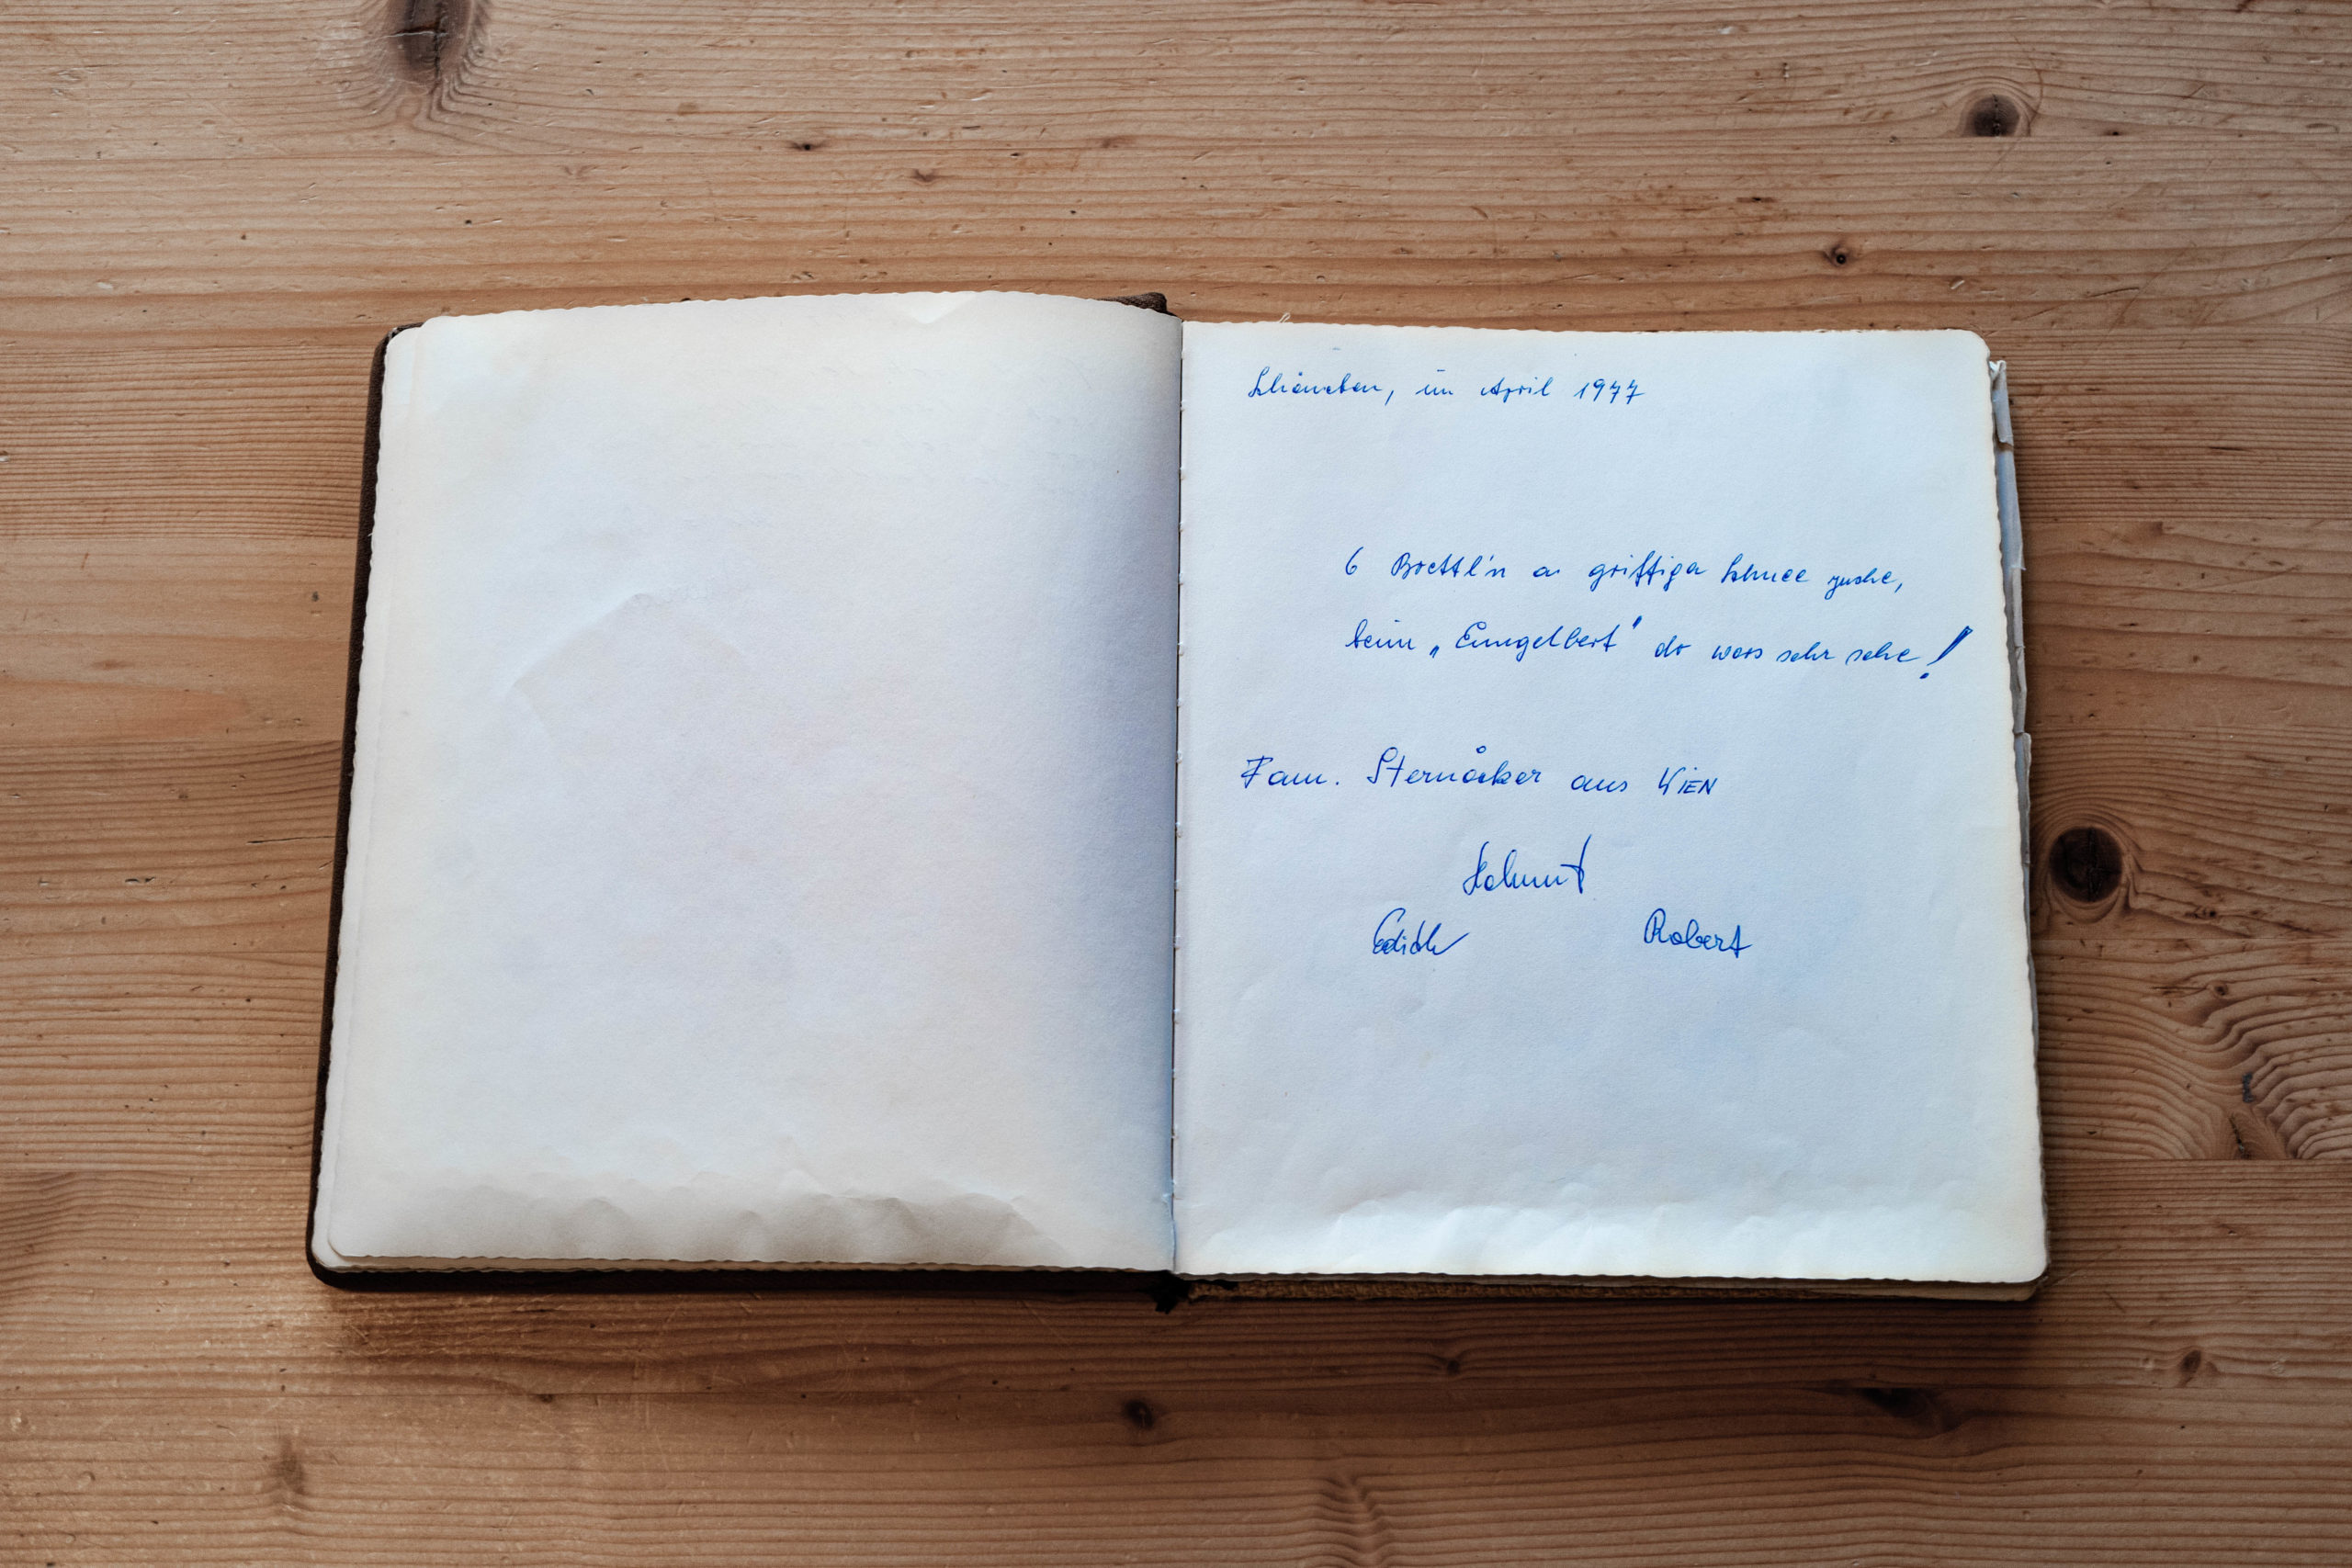 Schöneben, im April 1977
6 Brettl'n a griffiga Schnee
beim „Eumgelbert" do wors sehr sche!
Fam. Sternåcker aus WIEN
Helmut
Edith Robert